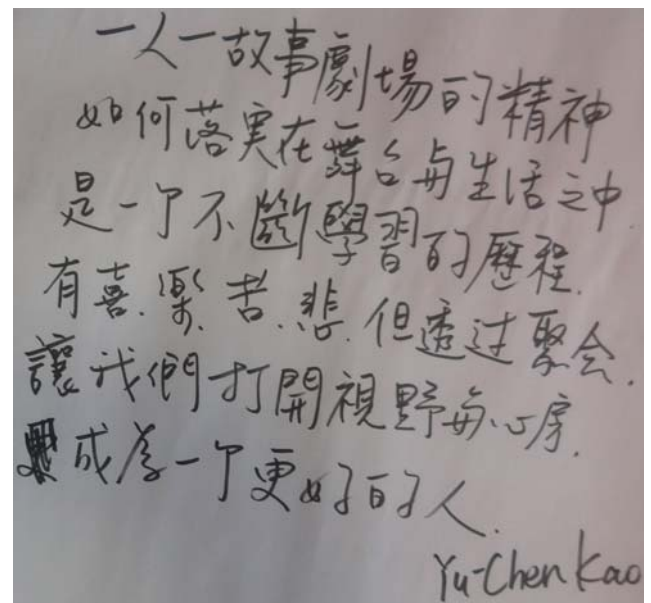 一人一故事劇場的精神
如何落実在舞台與生活之中
是一个不斷學習的歷程.
有喜.樂.苦.悲.但透过聚会.
讓我們打開視野與心房.
成為一个更好的人.
Yu-Chen Kao